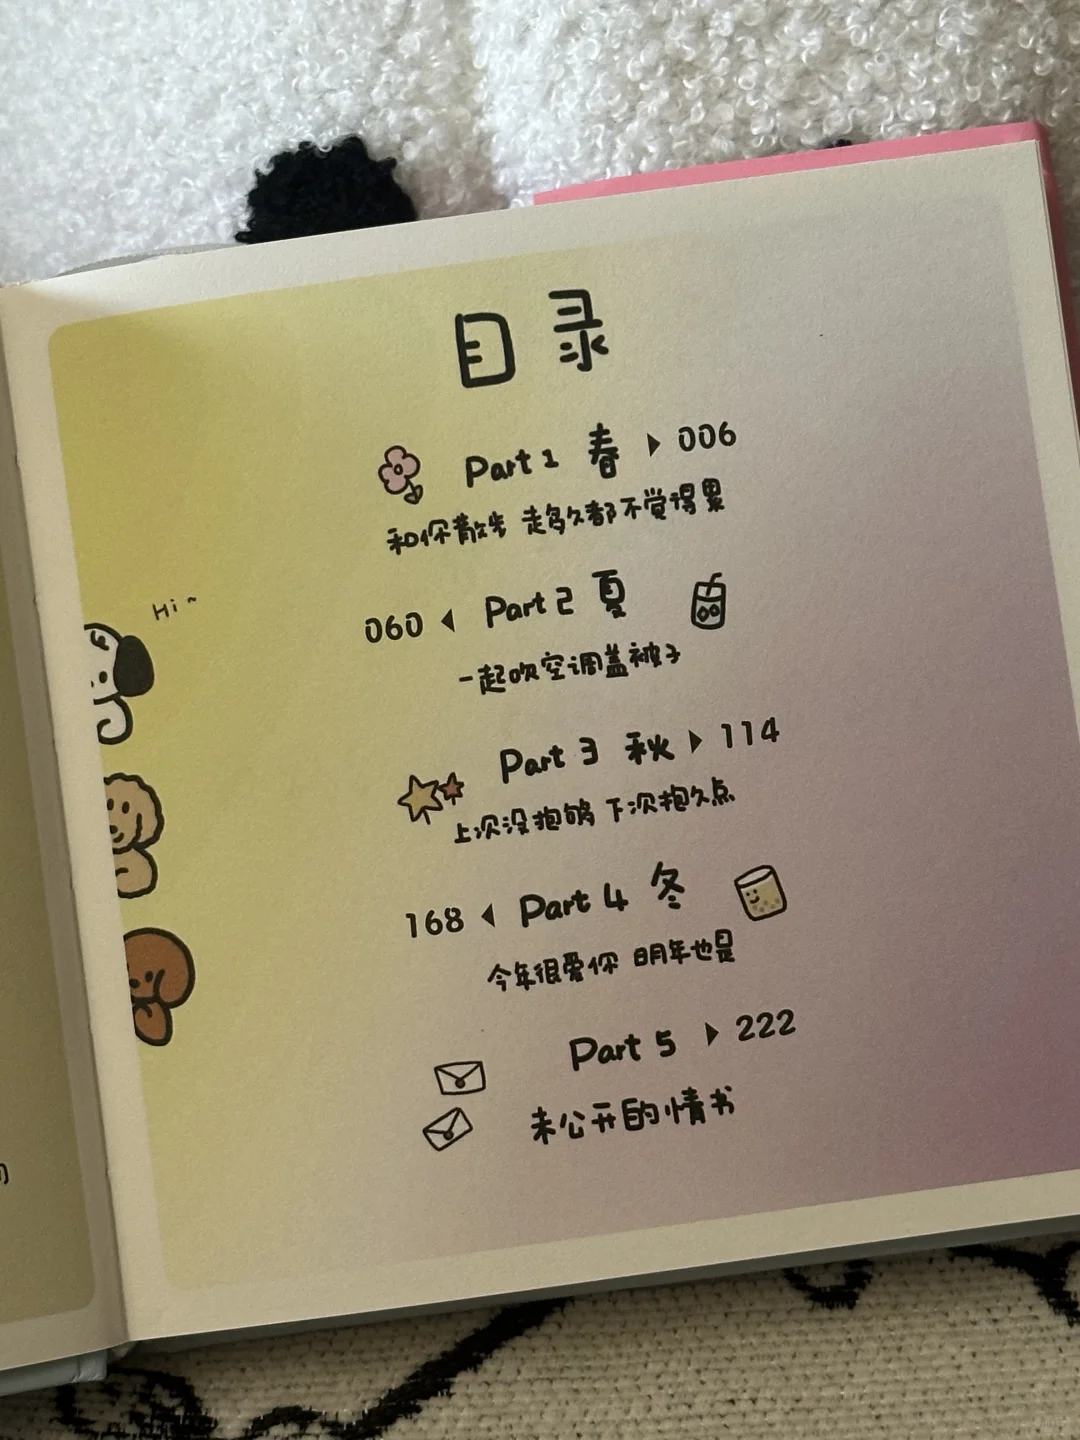 目录
Part 1 春 ▶ 006
和你散步 走多久都不觉得累
Hi~
060 ◀ Part 2 夏
一起吹空调盖被子
Part 3 秋 ▶ 114
上次没抱够 下次抱久点
168 ◀ Part 4 冬
今年很爱你 明年也是
Part 5 ▶ 222
未公开的情书